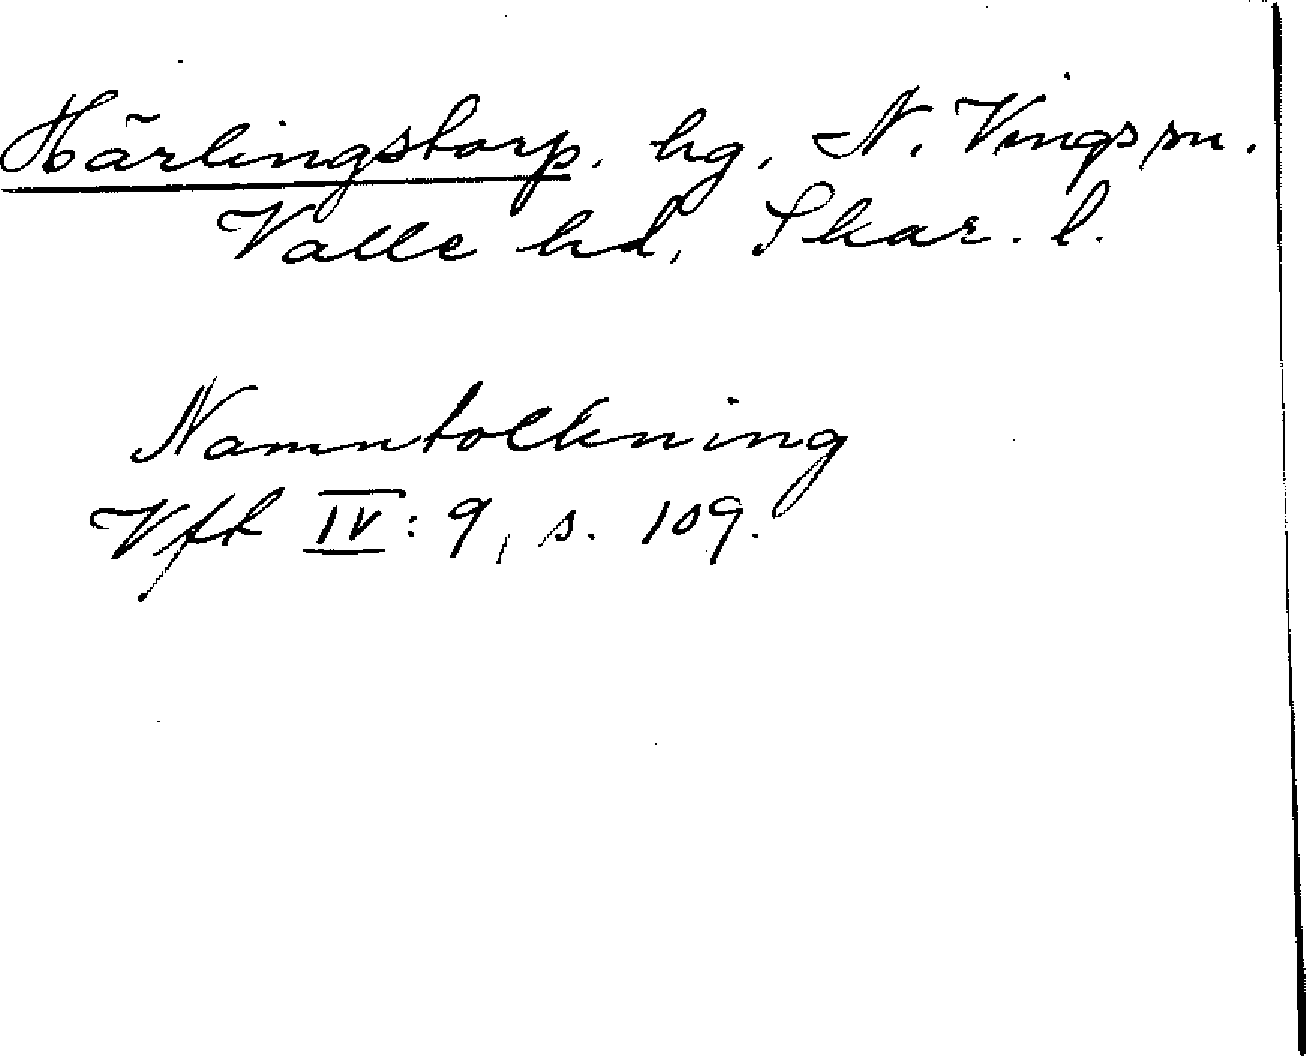 Härlingstorp. hg, N. Vings sn.
Valle hd, Skar. l.
Namntolkning
Vft IV: 9, s. 109.